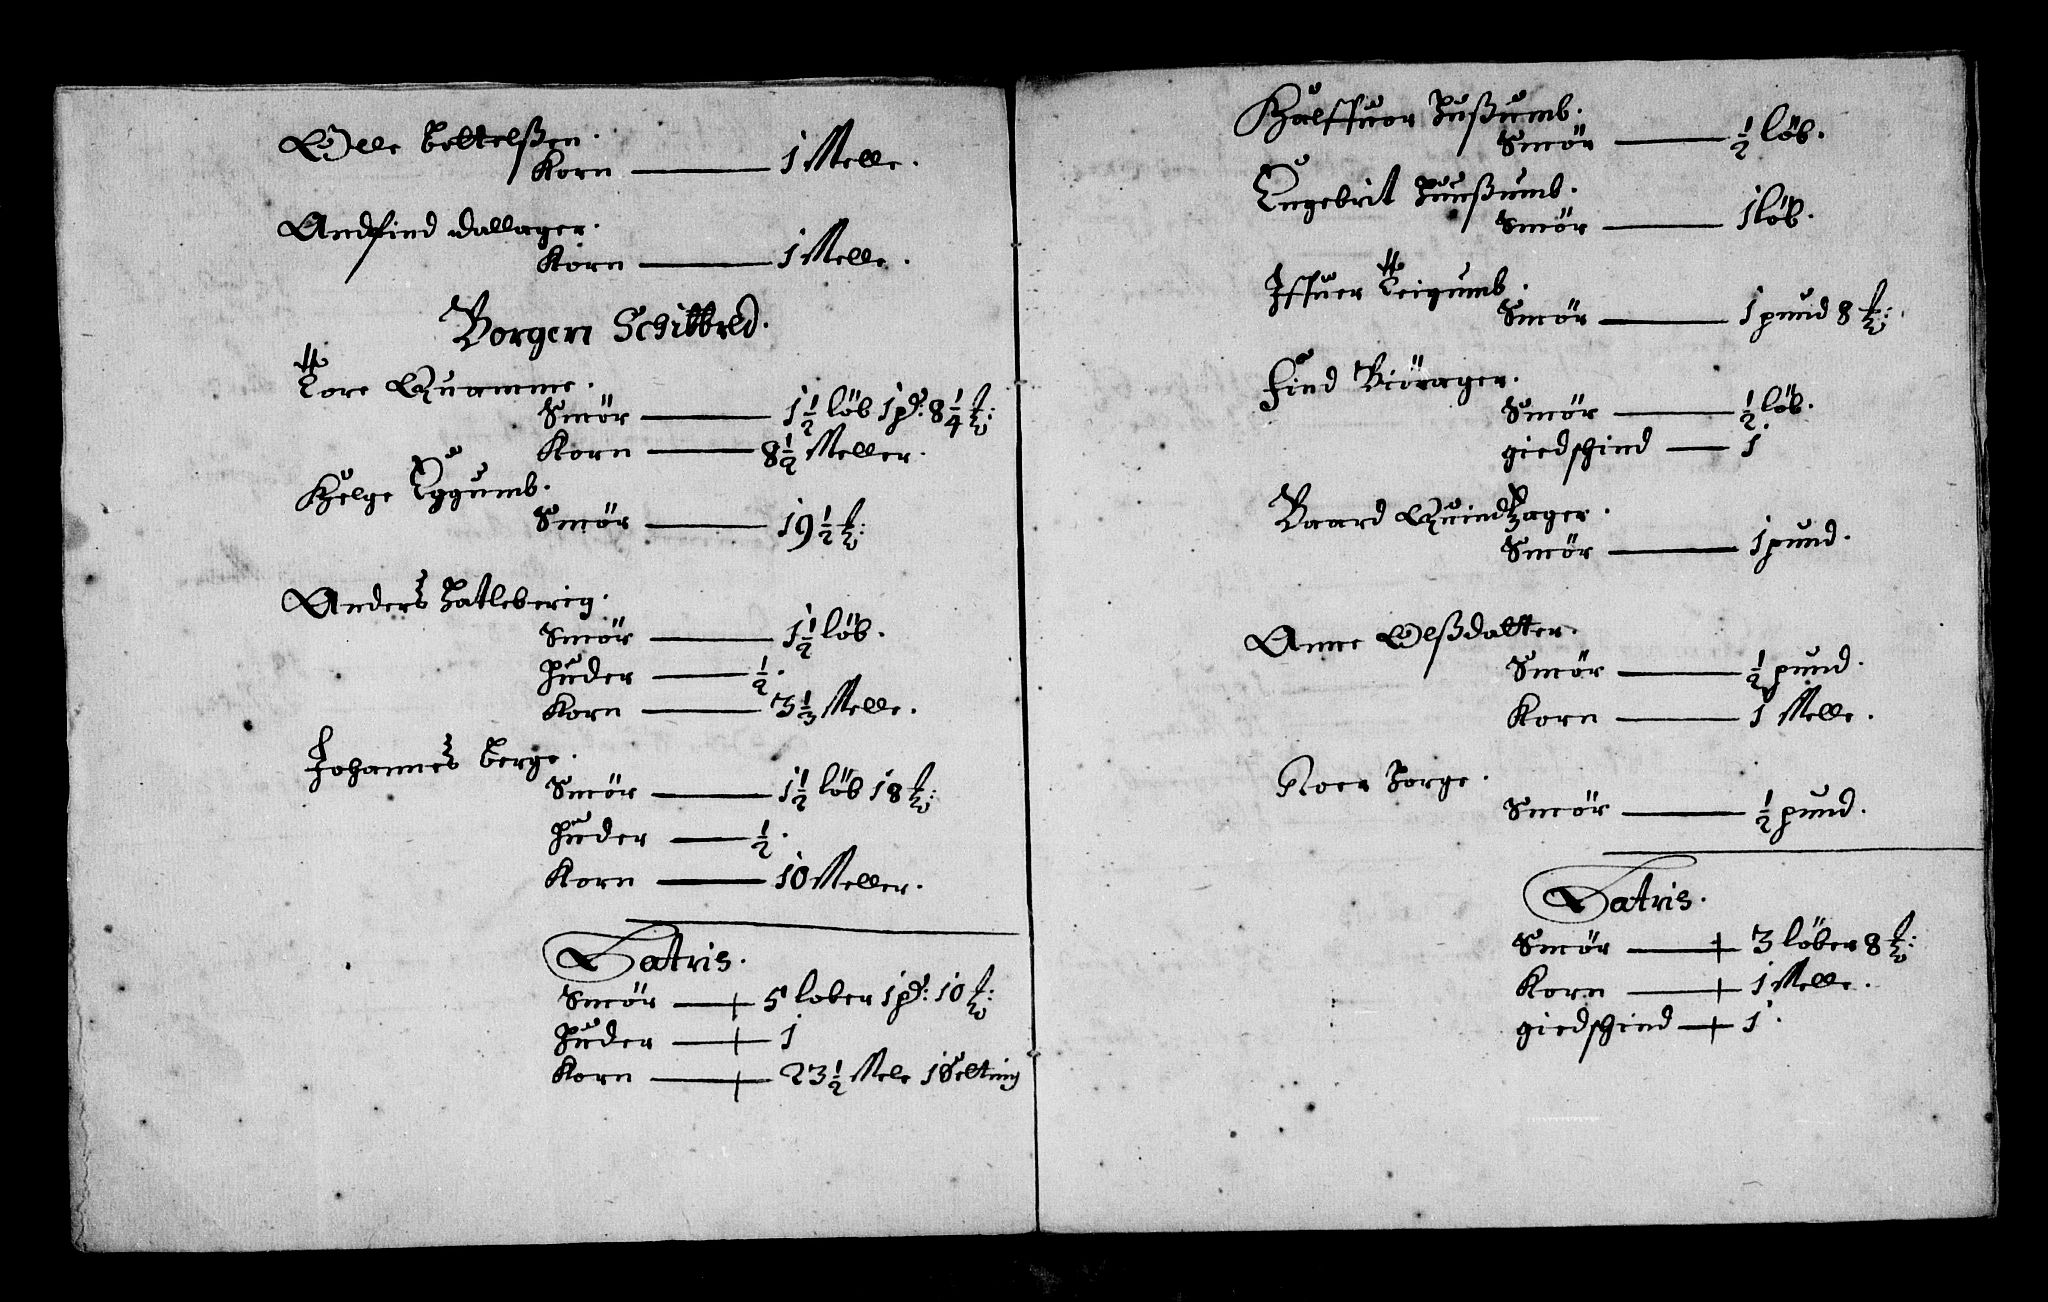 Olle Bottelßen.
Korn — 1 Melle.
Andfind Dallager.
Korn — 1 Melle.
Borgen Schibbred.
Tore Quamme.
Smör — 1½ löb 1 pd: 8¼ ℔:
Korn — 8½ Meller.
Helge Eggumb.
Smör — 19½ ℔:
Anders Hatleberig.
Smör — 1½ löb.
Huder — ½.
Korn — 3⅓ Melle.
Johannes Berge.
Smör — 1½ löb 18 ℔:
Huder — ½.
Korn — 10 Meller.
Latris.
Smör — 5 lober 1 pd: 10 ℔:
Huder — 1
Korn — 23½ Mele 1 Selting
Halffuor Hußumb.
Smör — ½ löb.
Engebrit Huußumb.
Smör — 1 löb.
Iffuer Teigumb.
Smör — 1 pund 8 ℔:
Find Biörager.
Smör — ½ löb.
giedschind — 1
Baard Quindzager.
Smör — 1 pund.
Anne Olßdatter.
Smör — ½ pund.
Korn — 1 Melle.
Roer Borge.
Smör — ½ pund.
Latris.
Smör — 3 löber 8 ℔:
Korn — 1 Melle.
giedschind — 1.